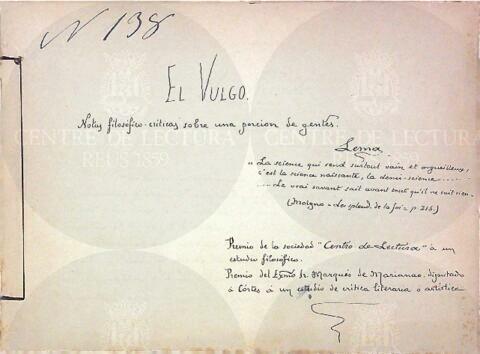 Nº 138
EL VULGO.
Notas filosófico-críticas sobre una porcion de gentes.
Lema
"La science qui rend surtout vain et orgueilleux,
c'est la science naissante, la demi-science ......
..... Le vrai savant sait avant tout qu'il ne sait rien.
(Moigno - Les splend. de la foi - p. 216.)
Premio de la sociedad "Centro de Lectura" á un
estudio filosófico.
Premio del Exmo Sr. Marqués de Marianao, diputado
á Córtes á un estudio de critica literaria o artística
CENTRE DE LECTURA
REUS 1859